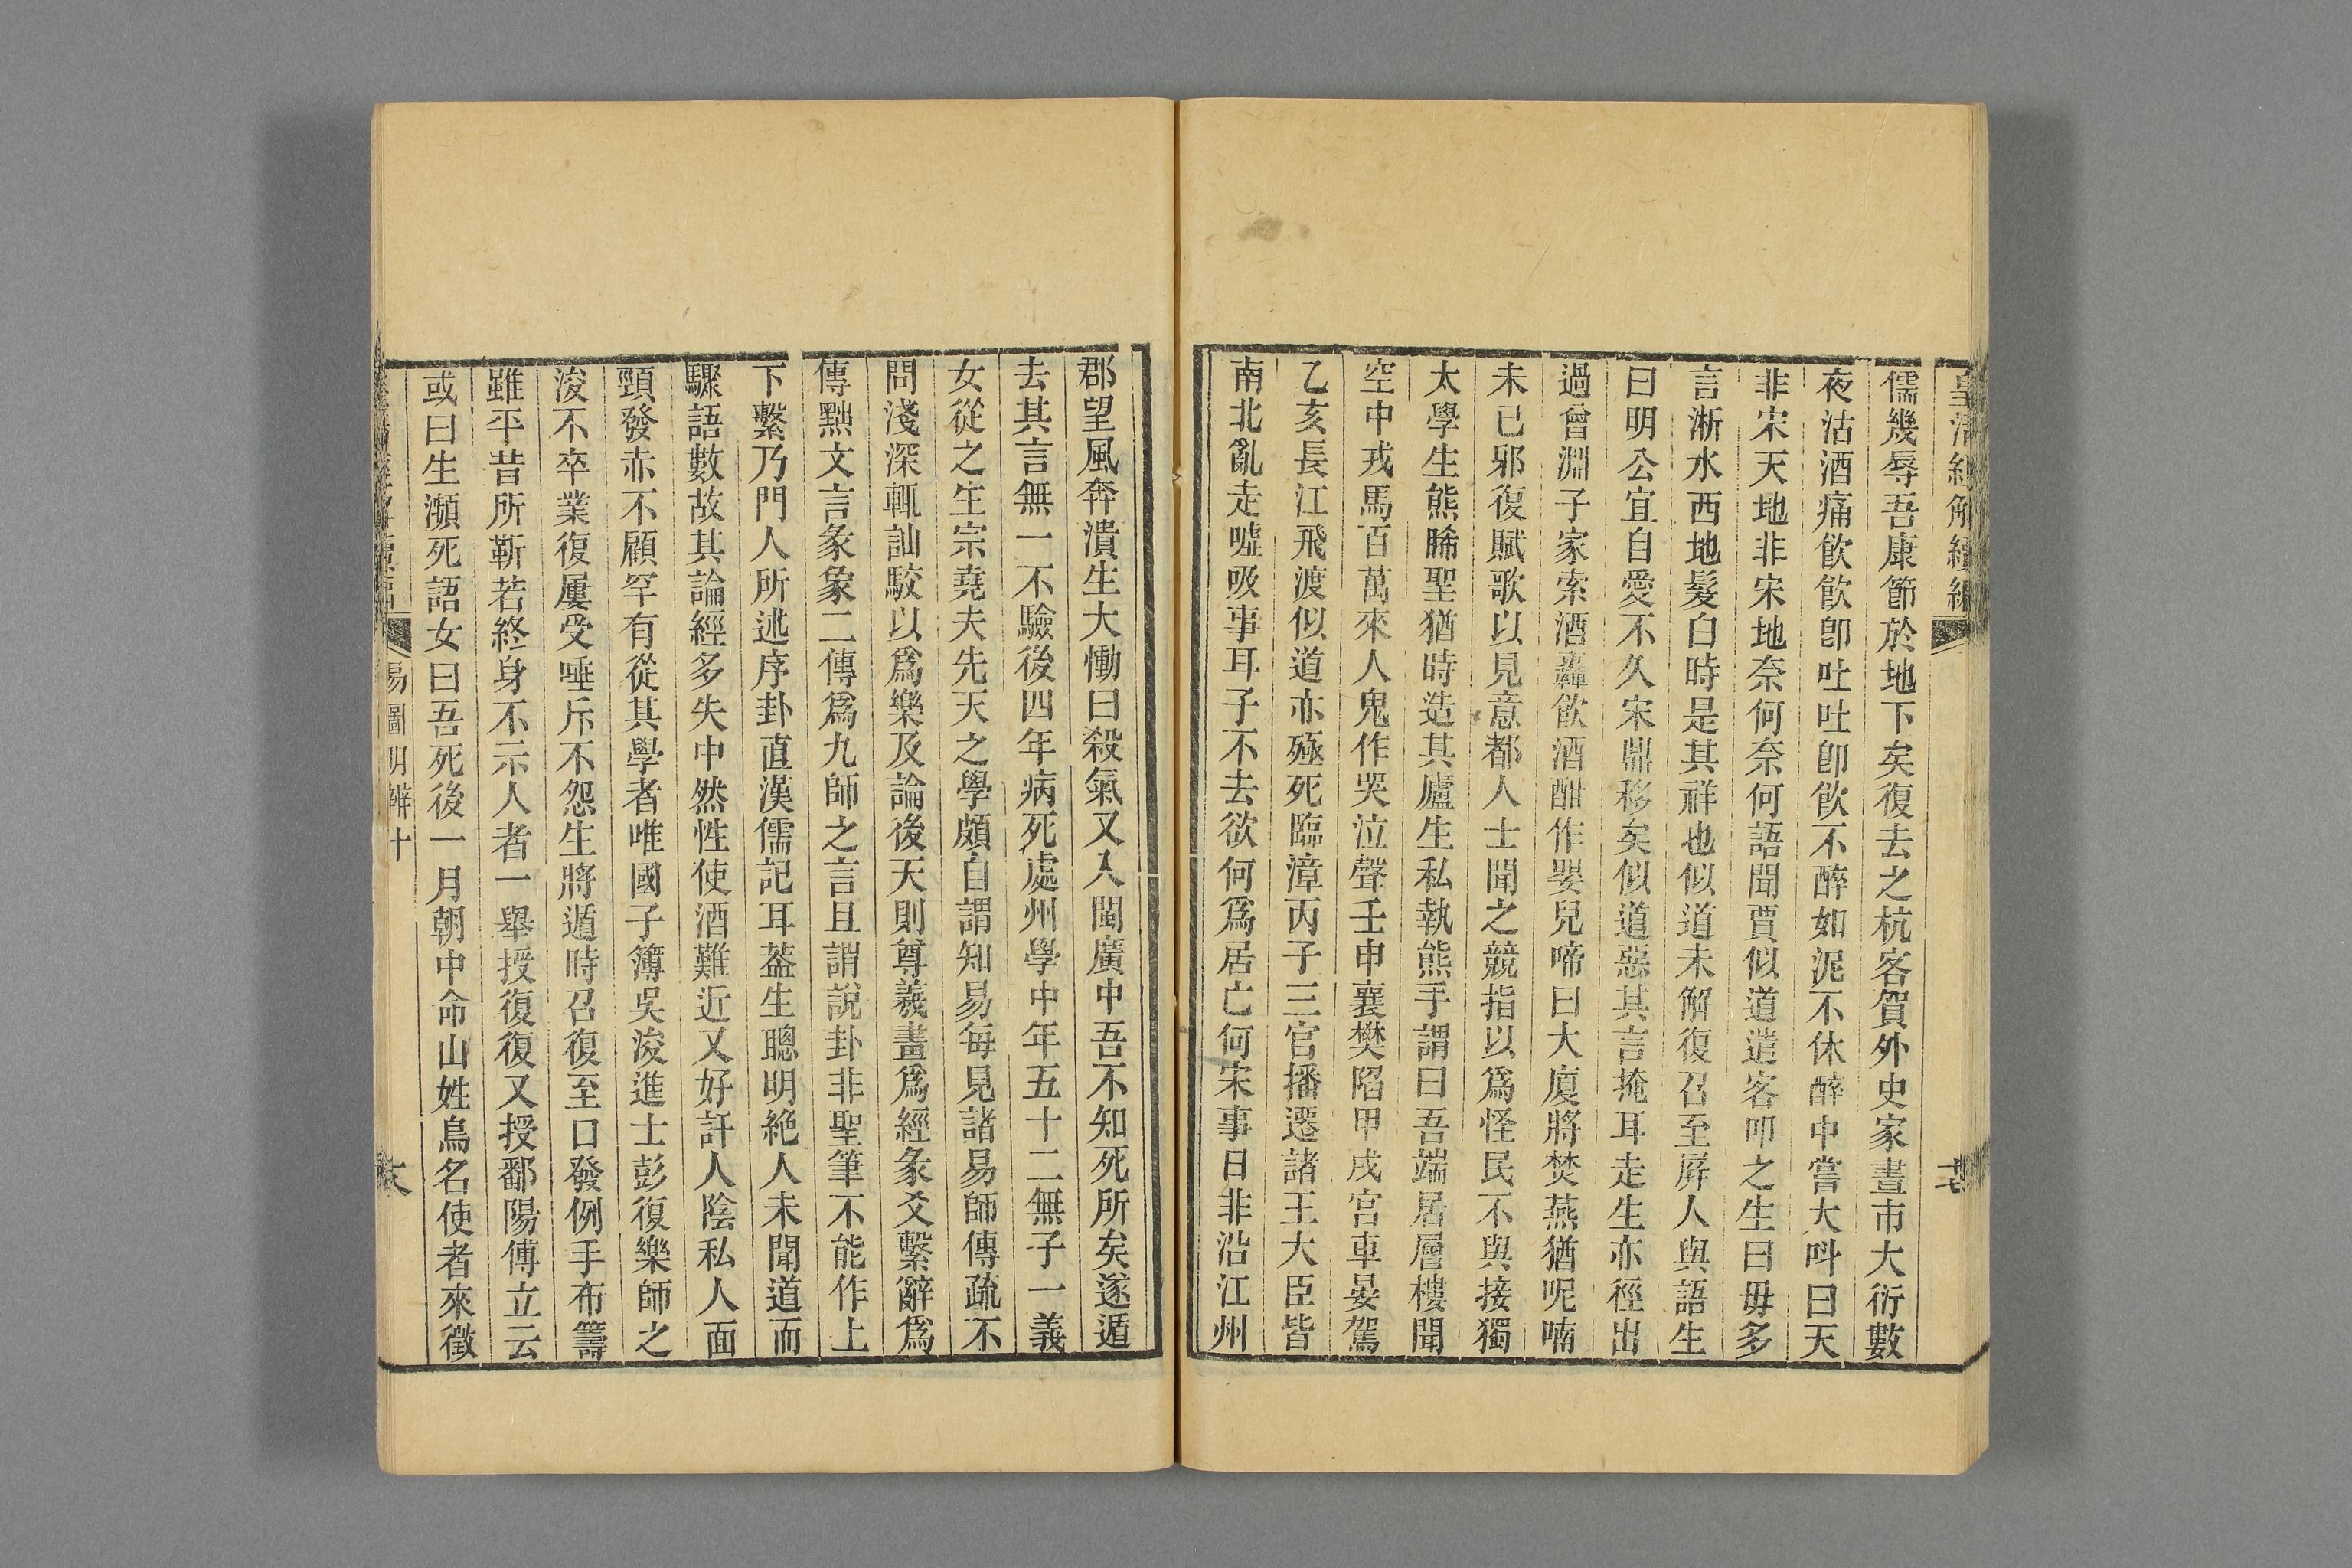 皇清經解續編
儒幾辱吾康節於地下矣復去之杭客賀外史家晝市大衍數
夜沽酒痛飲飲卽吐吐卽飲不醉如泥不休醉中嘗大呌曰天
非宋天地非宋地奈何奈何語聞賈似道遣客叩之生曰毋多
言淅水西地髮白時是其祥也似道未解復召至屛人與語生
曰明公宜自愛不久宋鼎移矣似道惡其言掩耳走生亦徑出
過曾淵子家索酒轟飲酒酣作嬰兒啼曰大廈將焚燕猶呢喃
未已邪復賦歌以見意都人士聞之競指以爲怪民不與接獨
太學生熊晞聖猶時造其廬生私執熊手謂曰吾端居層樓聞
空中戎馬百萬來人鬼作哭泣聲壬申襄樊陷甲戌宮車晏駕
乙亥長江飛渡似道亦殛死臨漳丙子三宮播遷諸王大臣皆
南北亂走噓吸事耳子不去欲何爲居亡何宋事日非沿江州
郡望風奔潰生大慟曰殺氣又入閩廣中吾不知死所矣遂遁
去其言無一不驗後四年病死處州學中年五十二無子一義
女從之生宗堯夫先天之學頗自謂知易每見諸易師傳疏不
問淺深輒訕駮以爲樂及論後天則尊羲畫爲經彖爻繫辭爲
傳黜文言彖象二傳爲九師之言且謂說卦非聖筆不能作上
下繫乃門人所述序卦直漢儒記耳葢生聰明絶人未聞道而
驟語數故其論經多失中然性使酒難近又好訐人陰私人面
頸發赤不顧罕有從其學者唯國子簿吳浚進士彭復樂師之
浚不卒業復屢受唾斥不怨生將遁時召復至口發例手布籌
雖平昔所靳若終身不示人者一舉授復復又授鄱陽傅立云
或曰生瀕死語女曰吾死後一月朝中命山姓鳥名使者來徵
易圖明辨十